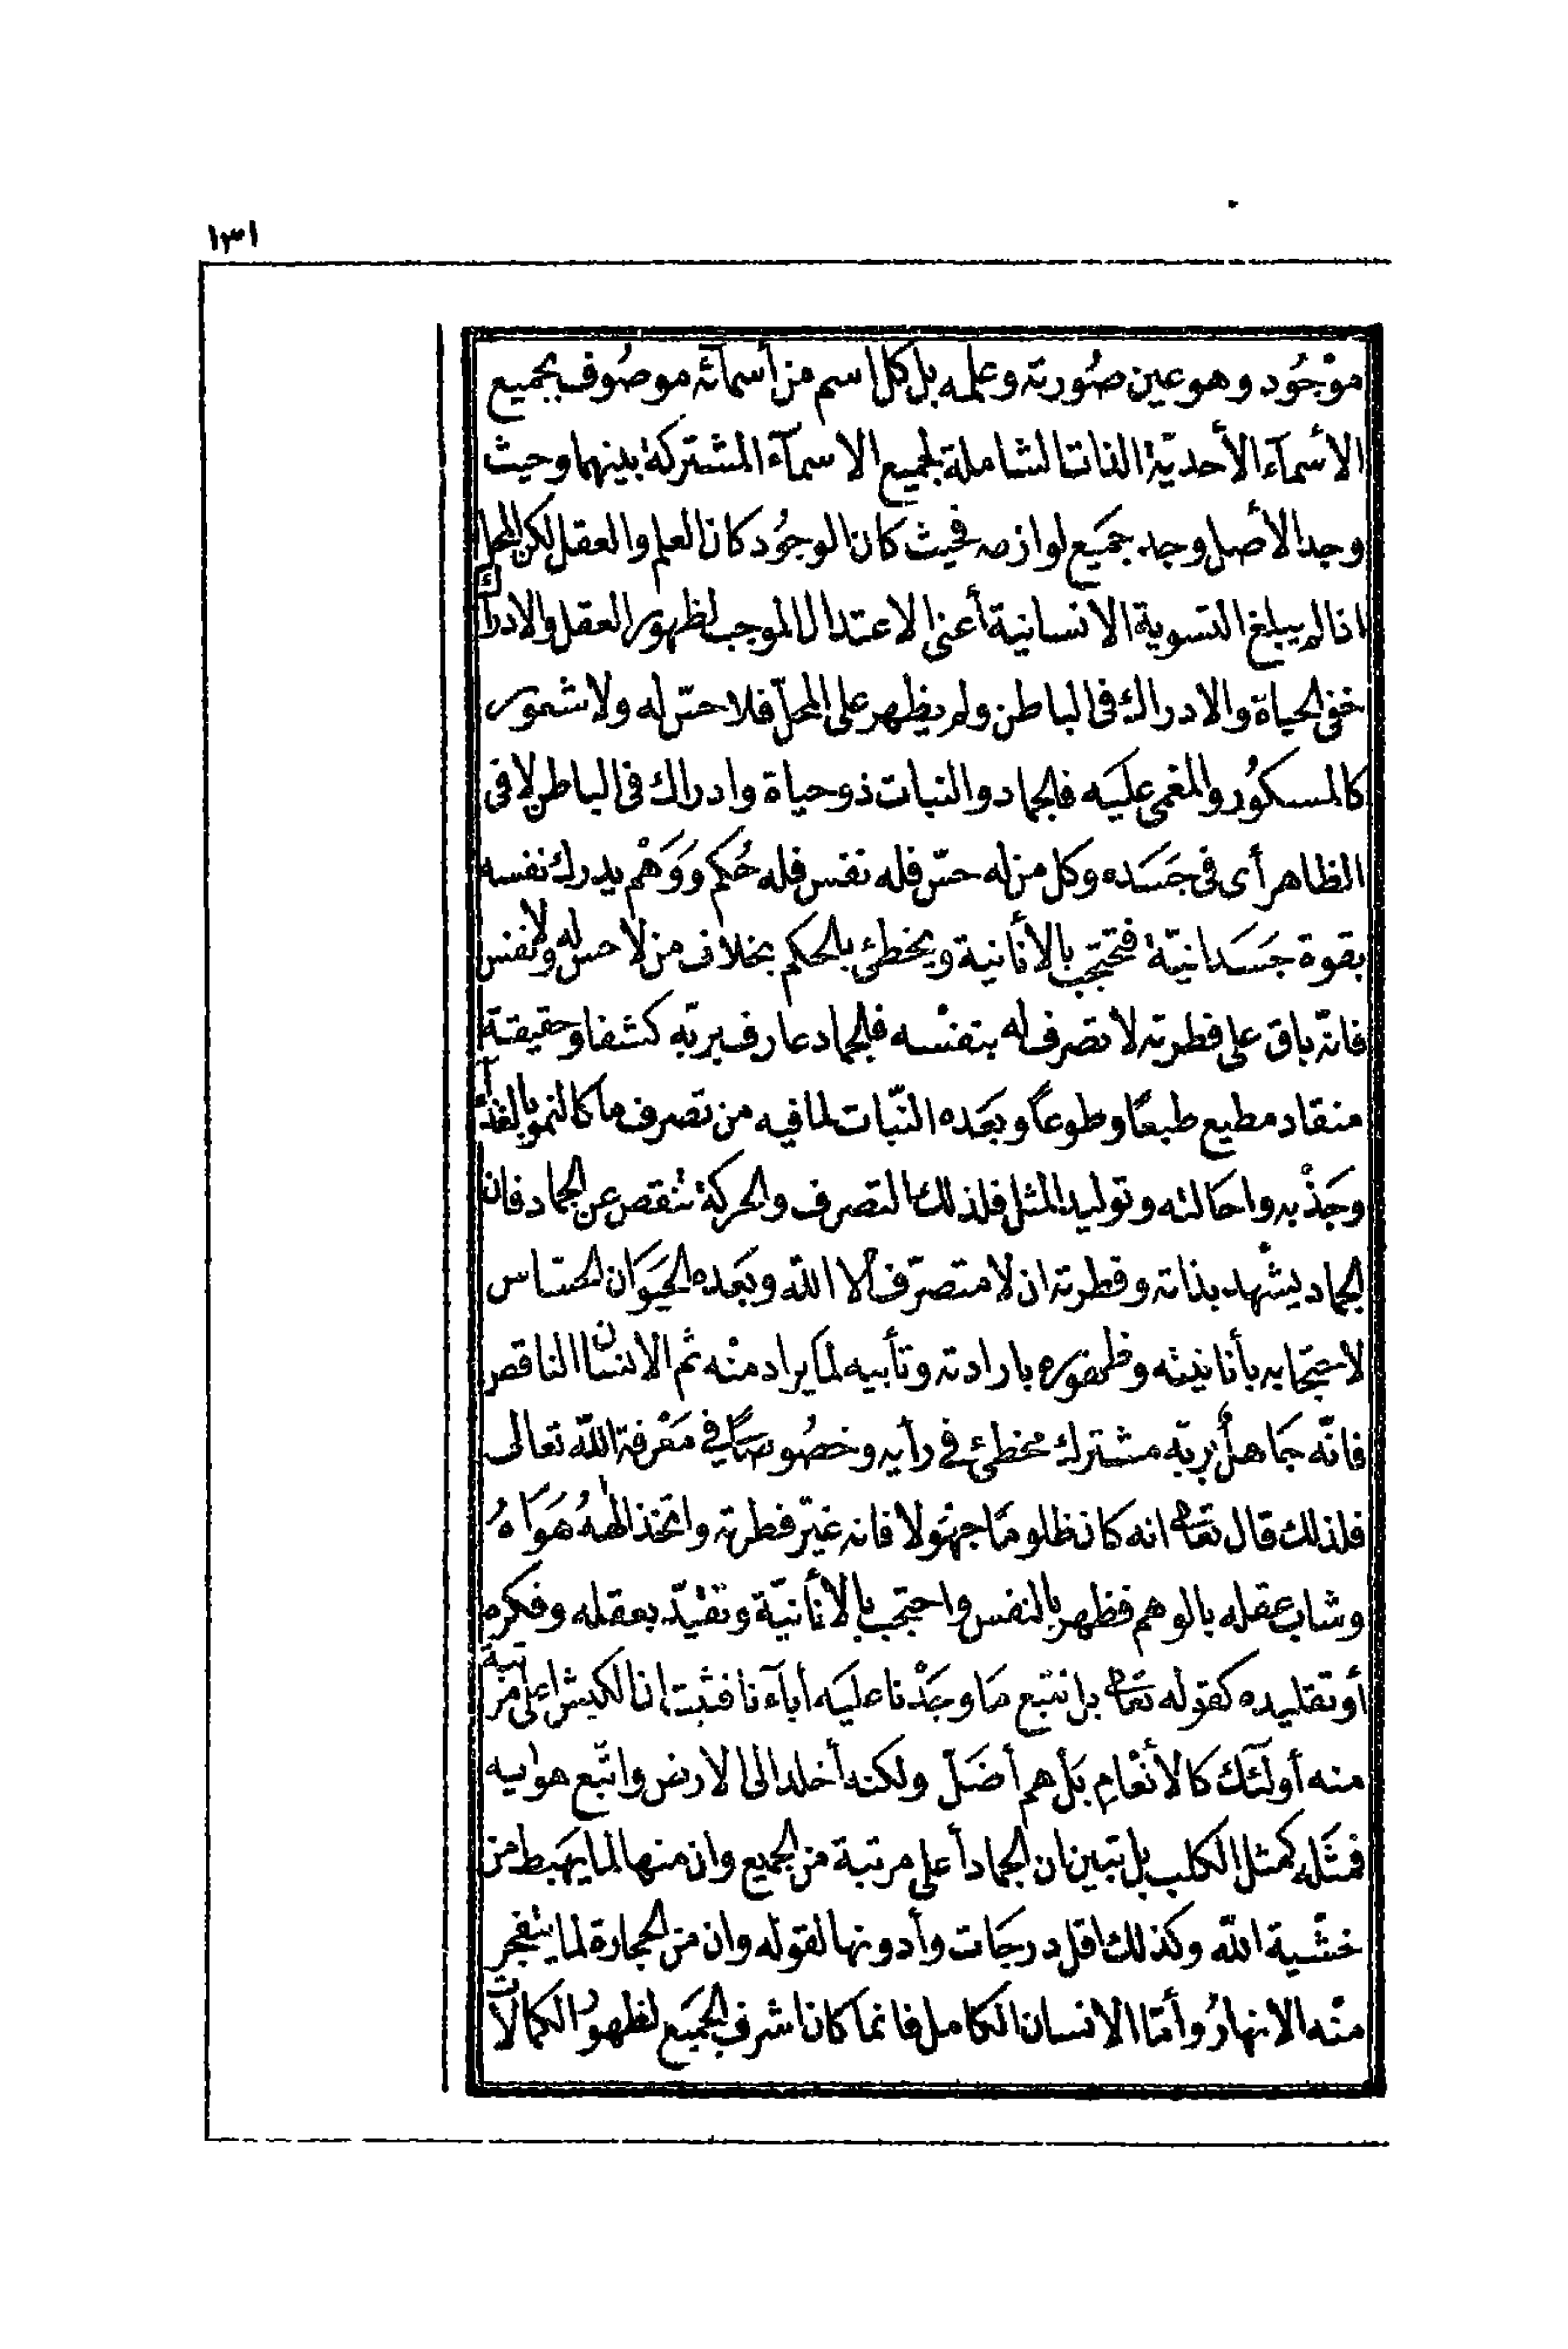 ١٣١
موْجُود وهو عين صُورته وعلمه بل كل اسم من أسمآئه موصُوف بجميع
الأسمآء الأحديّة الذات الشاملة لجميع الاسمآء المشتركة بينهما وحيث
وجد الأصل وجد جميع لوازمه فحيث كان الوجُود كان العلم والعقل لكن المحل
اذا لم يبلغ التسوية الانسانية أعنى الاعتدال الموجب لظهور العقل والادراك
خفى الحياة والادراك فى الباطن ولم يظهر على المحلّ فلا حسّ له ولا شعور
كالمسكُور والمغمى عليه فالجماد والنبات ذو حياة وادراك فى الباطن لا فى
الظاهر أى فى جَسَده وكل من له حسّ فله نفس فله حُكم وَوَهْم يدرك نفسه
بقوة جَسَدانيّة فتحتجب بالأنانية ويخطئ بالحكم بخلاف من لا حس له ولا نفس
فانّه باق على فطرته لا تصرف له بنفْسه فالجماد عارف بربّه كشفا وحقيقة
منقاد مطيع طبعًا وطوعاً وبعَده النّبات لما فيه من تصرف ما كالنمو بالغذآء
وجَذْبه واحَالته وتوليد المثل فلذلك التصرف والحركة تنقص عن الجماد فان
الجماد يشْهد بذاته وفطرته ان لا متصرّف الا الله وبعَده الحَيَوَان الحسّاس
لاحتجابه بأنانيته وظهوره بارادته وتأبيه لما يراد منْه ثم الانسان الناقص
فانّه جَاهلٌ بربّه مشترك مخطئ فى رأيه وخصُوصًا فى مَعْرفة الله تعالى
فلذلك قال تعَالى انه كان ظلومًا جهُولا فانه غيّر فطرته واتخذ الٰههُ هَوَاهُ
وشاب عقله بالوهم فظهر بالنفس واحتجب بالأنانيّة وتقيّد بعقله وفكره
أو تقليده كقوله تعَالى بل نتبع مَا وجَدْنا عليَه أبآءنا فثبت ان الكبش اعلى مرتبة
منه أولَئك كالأنْعَامِ بَلْ هم أضَلّ ولكنه أخلد الى الارض واتّبع هواٰيه
فمثَله كمثل الكلب بل تبين ان الجماد أعلى مرتبة من الجميع وان منها لما يهَبط من
خشْية الله وكذلك اقل درجَات وأدونها لقوله وان من الحجارة لما يتفجر
منْه الانهارُ وأمّا الانسان الكامل فانما كان اشرف الجميَع لظهوُر الكمالات